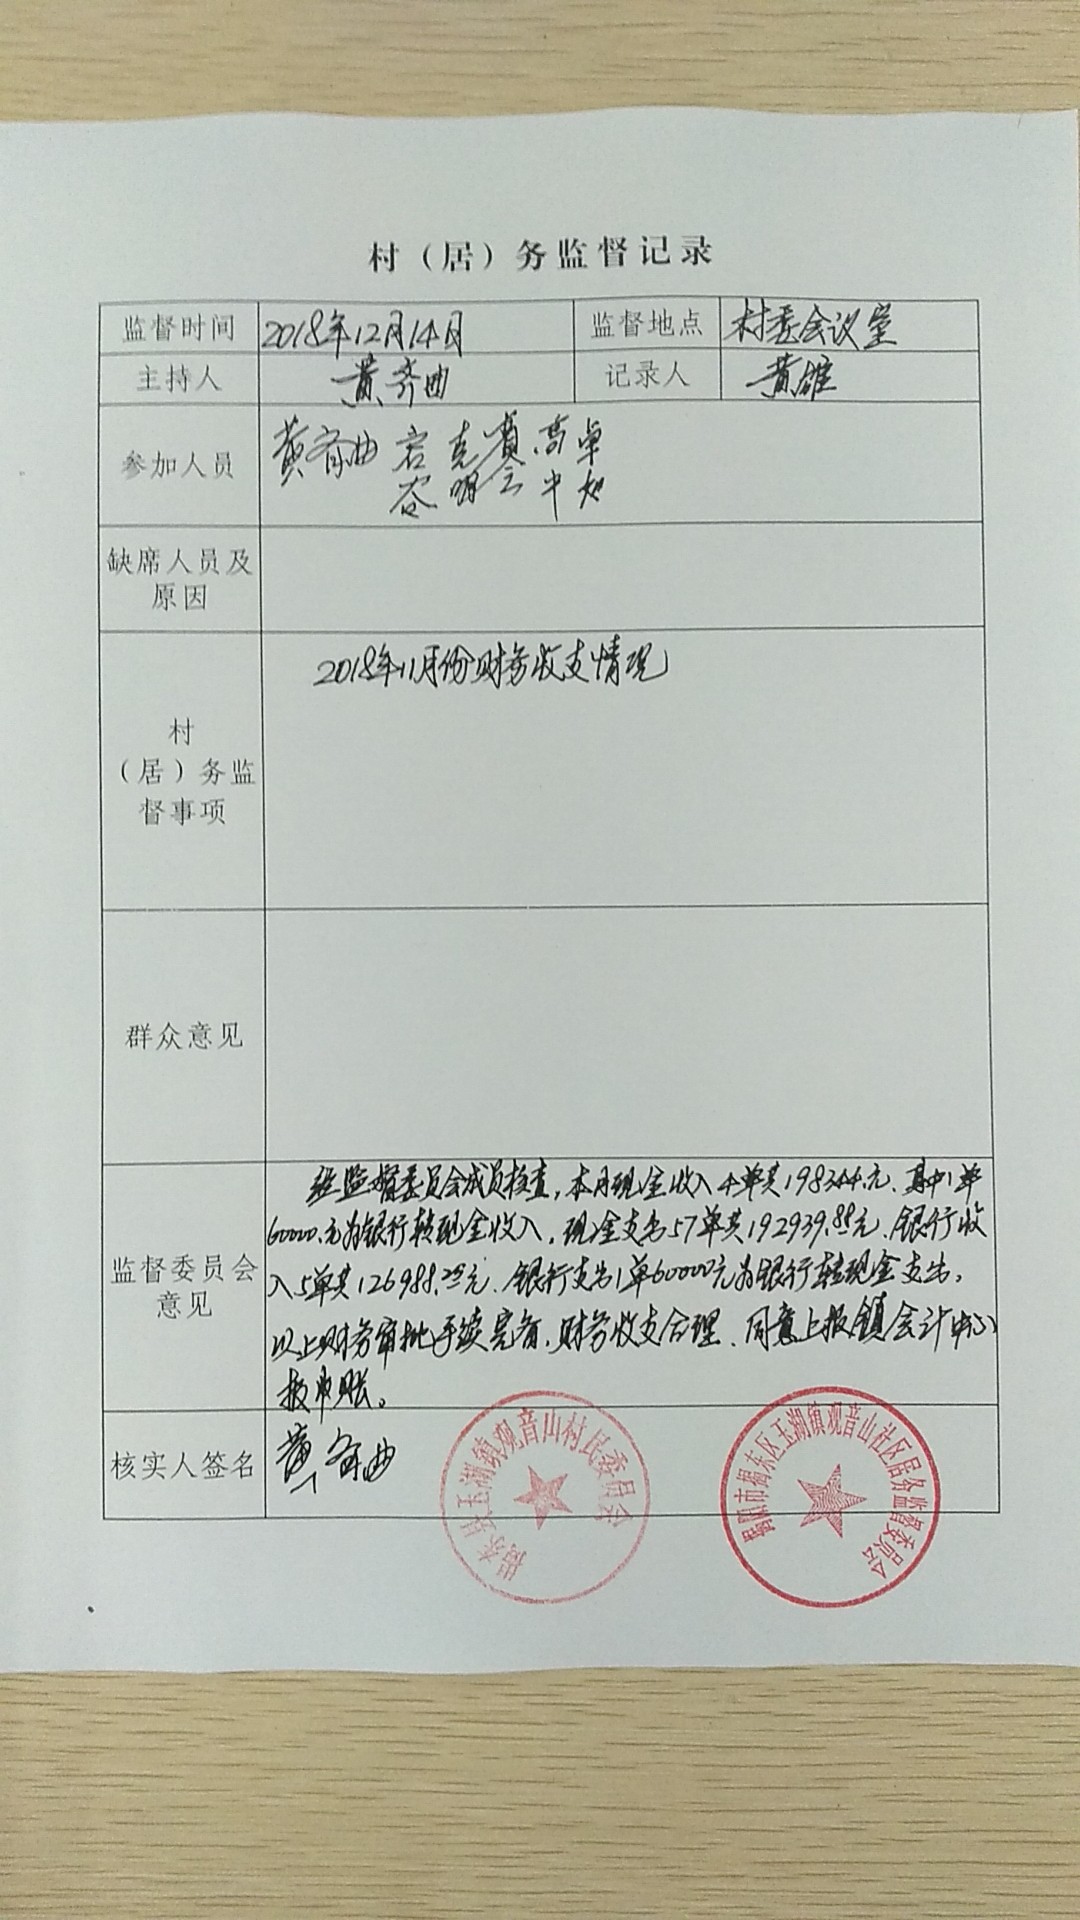 村（居）务监督记录
监督时间 2018年12月14日 监督地点 村委会议室
主持人 黄齐曲 记录人 黄雄
参加人员
缺席人员及
原因
村
（居）务监
督事项
2018年11月份财务收支情况
群众意见
监督委员会
意见
经监督委员会成员核查，本月现金收入4单共198344.元、其中1单
60000.元为银行转现金收入，现金支出57单共192939.88元、银行收
入5单共126988.25元、银行支出1单60000元为银行转现金支出，
以上财务审批手续完备，财务收支合理、同意上报镇会计中心
报账。
核实人签名
揭东县玉湖镇观音山村民委员会
揭阳市揭东区玉湖镇观音山社区居务监督委员会